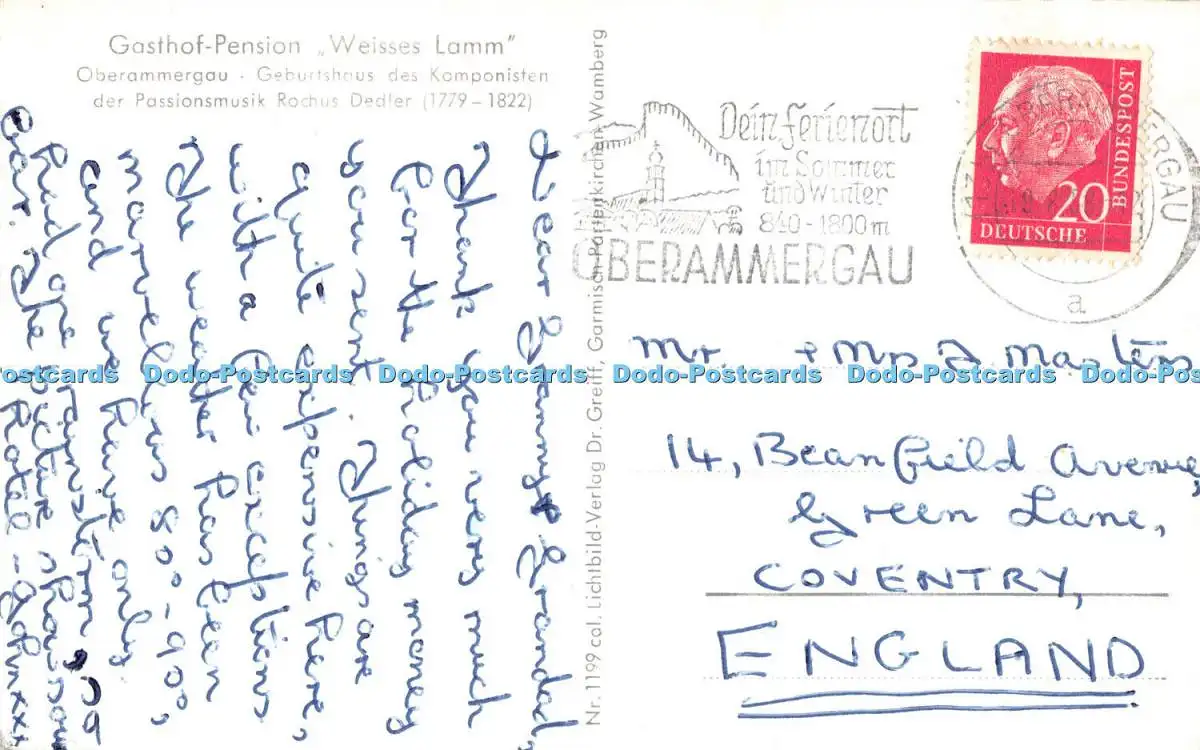 Gasthof-Pension „Weisses Lamm"
Oberammergau · Geburtshaus des Komponisten
der Passionsmusik Rochus Dedler (1779–1822)
Dear Granny & Grandad,
Thank you very much
for the holiday money
you sent. Things are
quite expensive here,
with a few exceptions
The weather has been
marvellous 80°-90°,
and we have only
had one rainstorm so
far. The picture shows our
Hotel - John xxx
Nr. 1199 col. Lichtbild-Verlag Dr. Greiff, Garmisch-Partenkirchen-Wamberg
Dein Ferienort
im Sommer
und Winter
840-1800m
OBERAMMERGAU
BUNDESPOST
20
DEUTSCHE
a
Mr. + Mrs J Masters
14, Beanfield Avenue,
Green Lane,
COVENTRY,
ENGLAND
Dodo-Postcards Dodo-Postcards Dodo-Postcards Dodo-Postcards Dodo-Postcards